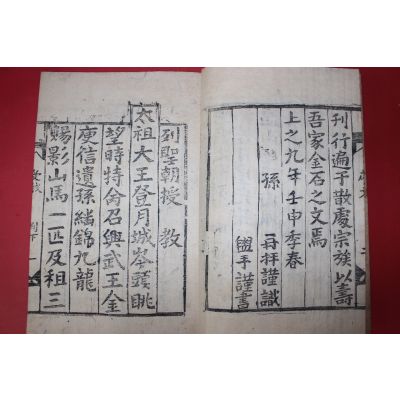 刊行遍于散處宗族以壽
吾家金石之文焉
上之九年壬申季春
孫 再拜謹識
盥手謹書
列聖朝授 教
太祖大王登月城岑頭眺
望時特命召興武王金
庾信遺孫繡錦九龍
賜影山馬一匹及租三